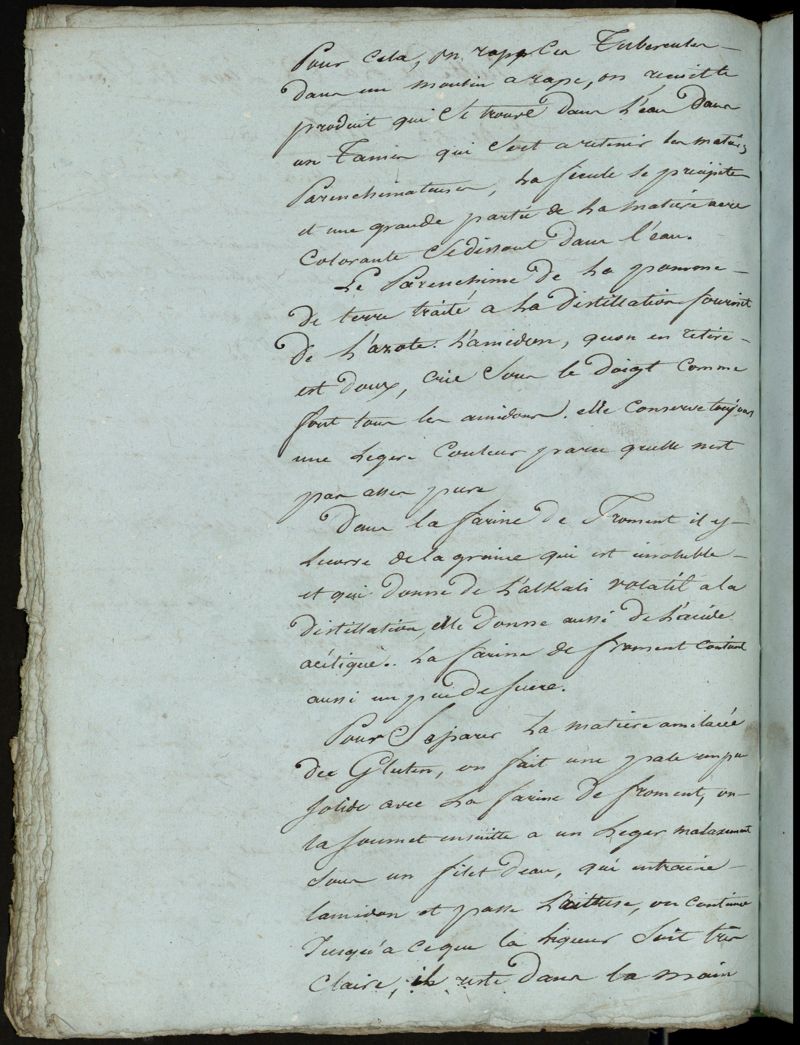 Pour Cela, on rappe les Tubercules
dans un moulin a rape, on recueille
produit qui se trouve dans l'eau dans
un Tamis qui sert a retenir les matieres
Parenchimateuses, La fecule se precipite
et une grande partie de La matiere acre
Colorante se dissout dans l'eau.
Le Parenchime de La pomme
de terre traité a La distillation fournit
de L'azote. L'amidon, quon en retire
est doux, crie sous le doigt comme
font tous les amidons. elle conserve toujours
une Legere Couleur parce quelle nest
pas assez pure
Dans la farine de Froment il y
de la graine qui est insoluble
et qui donne de L'alkali volatil a la
distillation, elle donne aussi de L'acide
acétique. La farine de froment contient
aussi un peu de sucre.
Pour Separer La matiere amilacée
du Gluten, on fait une pate un peu
solide avec La farine de froment, on
la soumet ensuitte a un Leger malaxement
sous un filet d'eau, qui entraine
lamidon et passe on continue
Jusqu'a ce que la Liqueur soit très
Claire, il reste dans la main